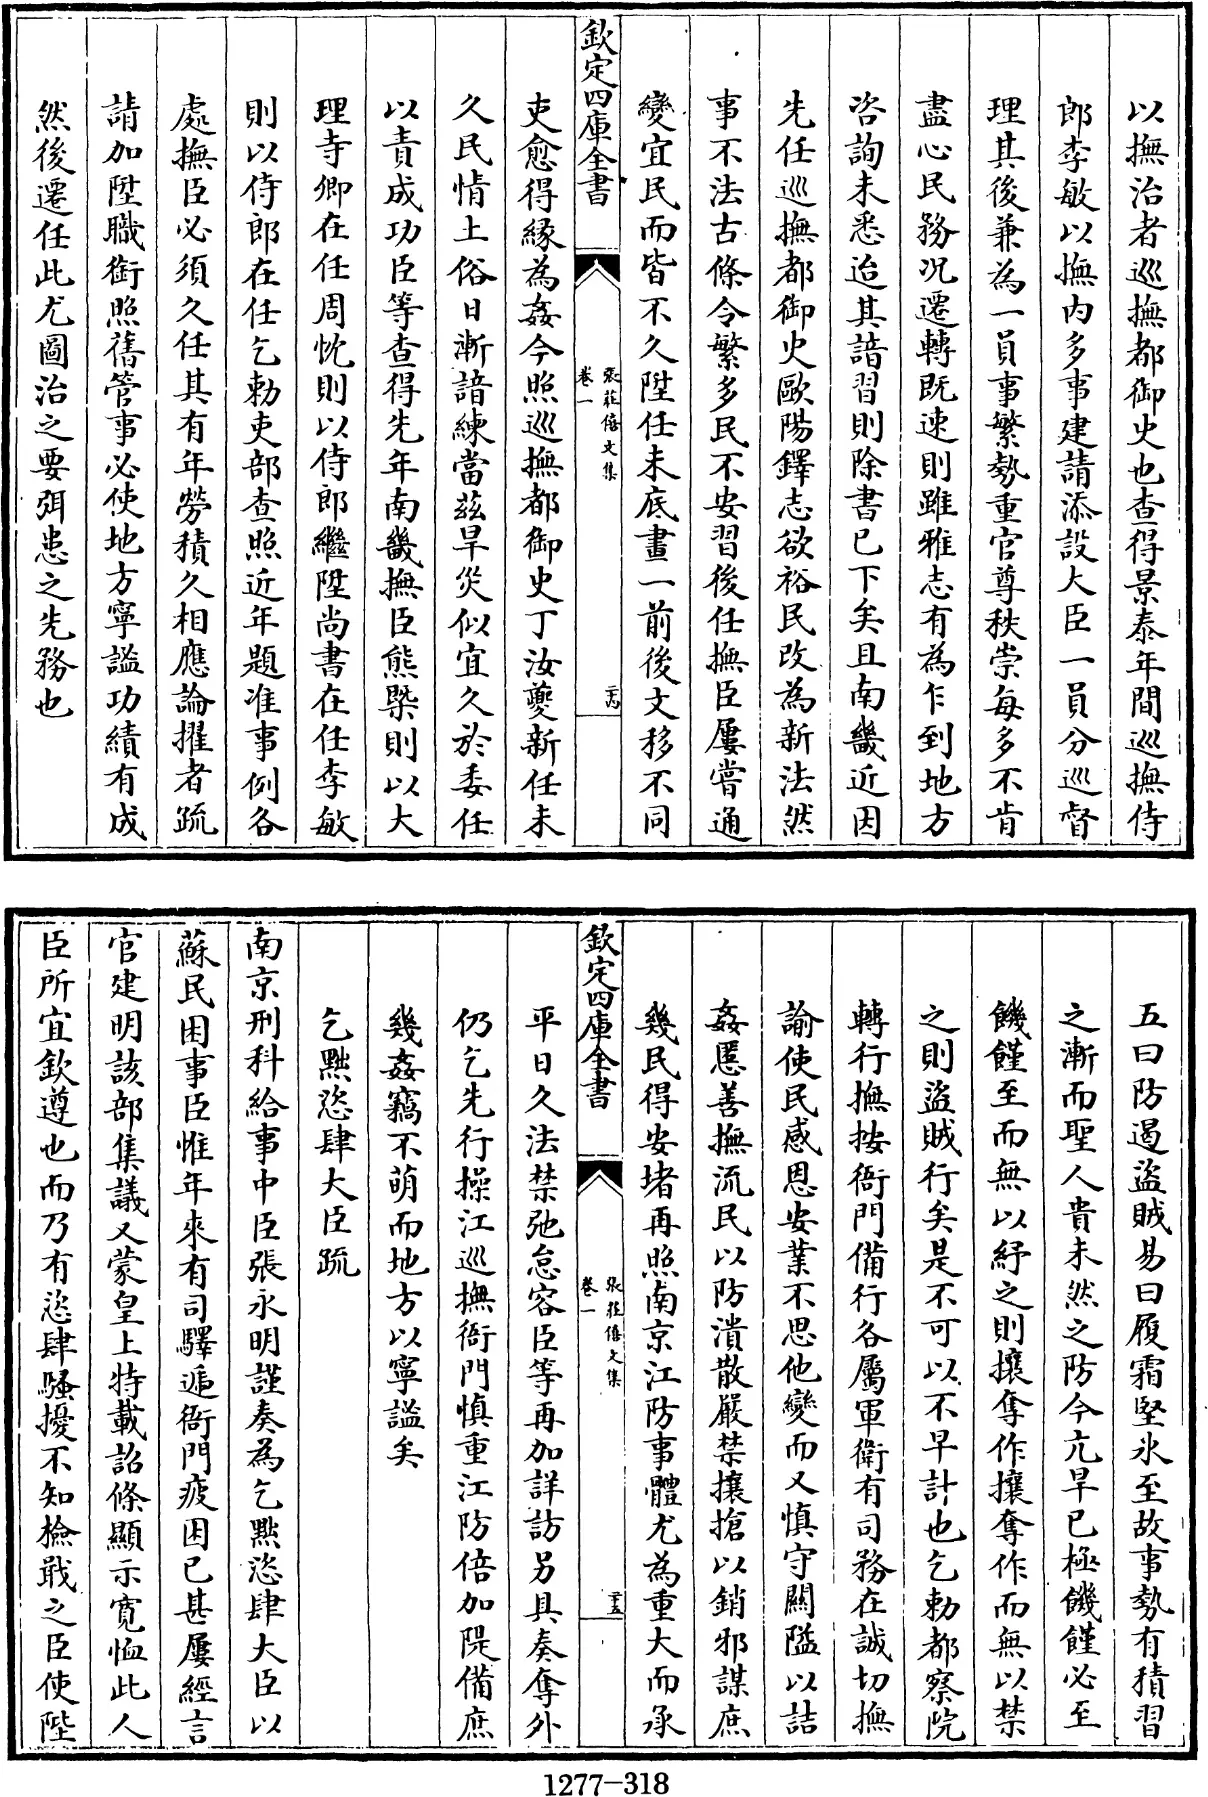 以撫治者巡撫都御史也查得景泰年間巡撫侍
郎李敏以撫内多事建請添設大臣一員分巡督
理其後兼為一員事繁勢重官尊秩崇每多不肯
盡心民務况遷轉既速則雖雅志有為乍到地方
咨詢未悉迨其諳習則除書已下矣且南畿近因
先任巡撫都御史歐陽鐸志欲裕民改為新法然
事不法古條令繁多民不安習後任撫臣屢嘗通
變宜民而皆不久陞任未底畫一前後文移不同
欽定四庫全書
張莊僖文集
卷一
吏愈得緣為姦今照巡撫都御史丁汝夔新任未
久民情土俗日漸諳練當兹旱災似宜久於委任
以責成功臣等查得先年南畿撫臣熊槩則以大
理寺卿在任周忱則以侍郎繼陞尚書在任李敏
則以侍郎在任乞勅吏部查照近年題准事例各
處撫臣必須久任其有年勞積久相應論擢者疏
請加陞職銜照舊管事必使地方寧謐功績有成
然後遷任此尤圖治之要弭患之先務也
五曰防遏盜賊易曰履霜堅氷至故事勢有積習
之漸而聖人貴未然之防今亢旱已極饑饉必至
饑饉至而無以紓之則攘奪作攘奪作而無以禁
之則盜賊行矣是不可以不早計也乞勅都察院
轉行撫按衙門備行各屬軍衛有司務在誠切撫
諭使民感恩安業不思他變而又慎守關隘以詰
姦慝善撫流民以防潰散嚴禁攘搶以銷邪謀庶
幾民得安堵再照南京江防事體尤為重大而承
欽定四庫全書
張莊僖文集
卷一
二十五
平日久法禁弛怠容臣等再加詳訪另具奏奪外
仍乞先行操江巡撫衙門慎重江防倍加隄備庶
幾姦竊不萌而地方以寧謐矣
乞黜恣肆大臣疏
南京刑科給事中臣張永明謹奏為乞黜恣肆大臣以
蘇民困事臣惟年來有司驛遞衙門疲困已甚屢經言
官建明該部集議又蒙皇上特載詔條顯示寬恤此人
臣所宜欽遵也而乃有恣肆騷擾不知檢戢之臣使陛
1277-318